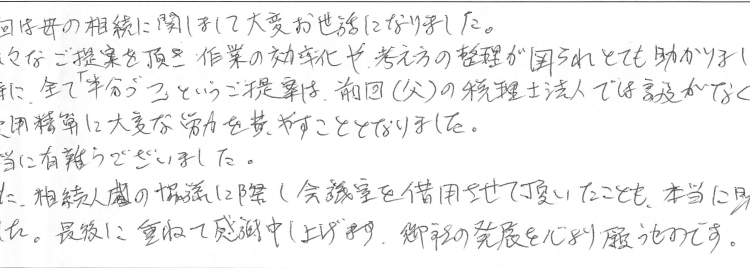 回は母の相続に関しまして大変お世話になりました。
々なご提案を頂き作業の効率化や、考え方の整理が図られとても助かりまし
に、全て「半分づつ」というご提案は、前回(父)の税理士法人では話がなく
費用精算に大変な労力を費やすこととなりました。
当に有難うございました。
た、相続人間の協議に際し会議室を借用させて頂いたことも、本当に助
た。最後に重ねて感謝申し上げます。御社の発展を心より願うものです。